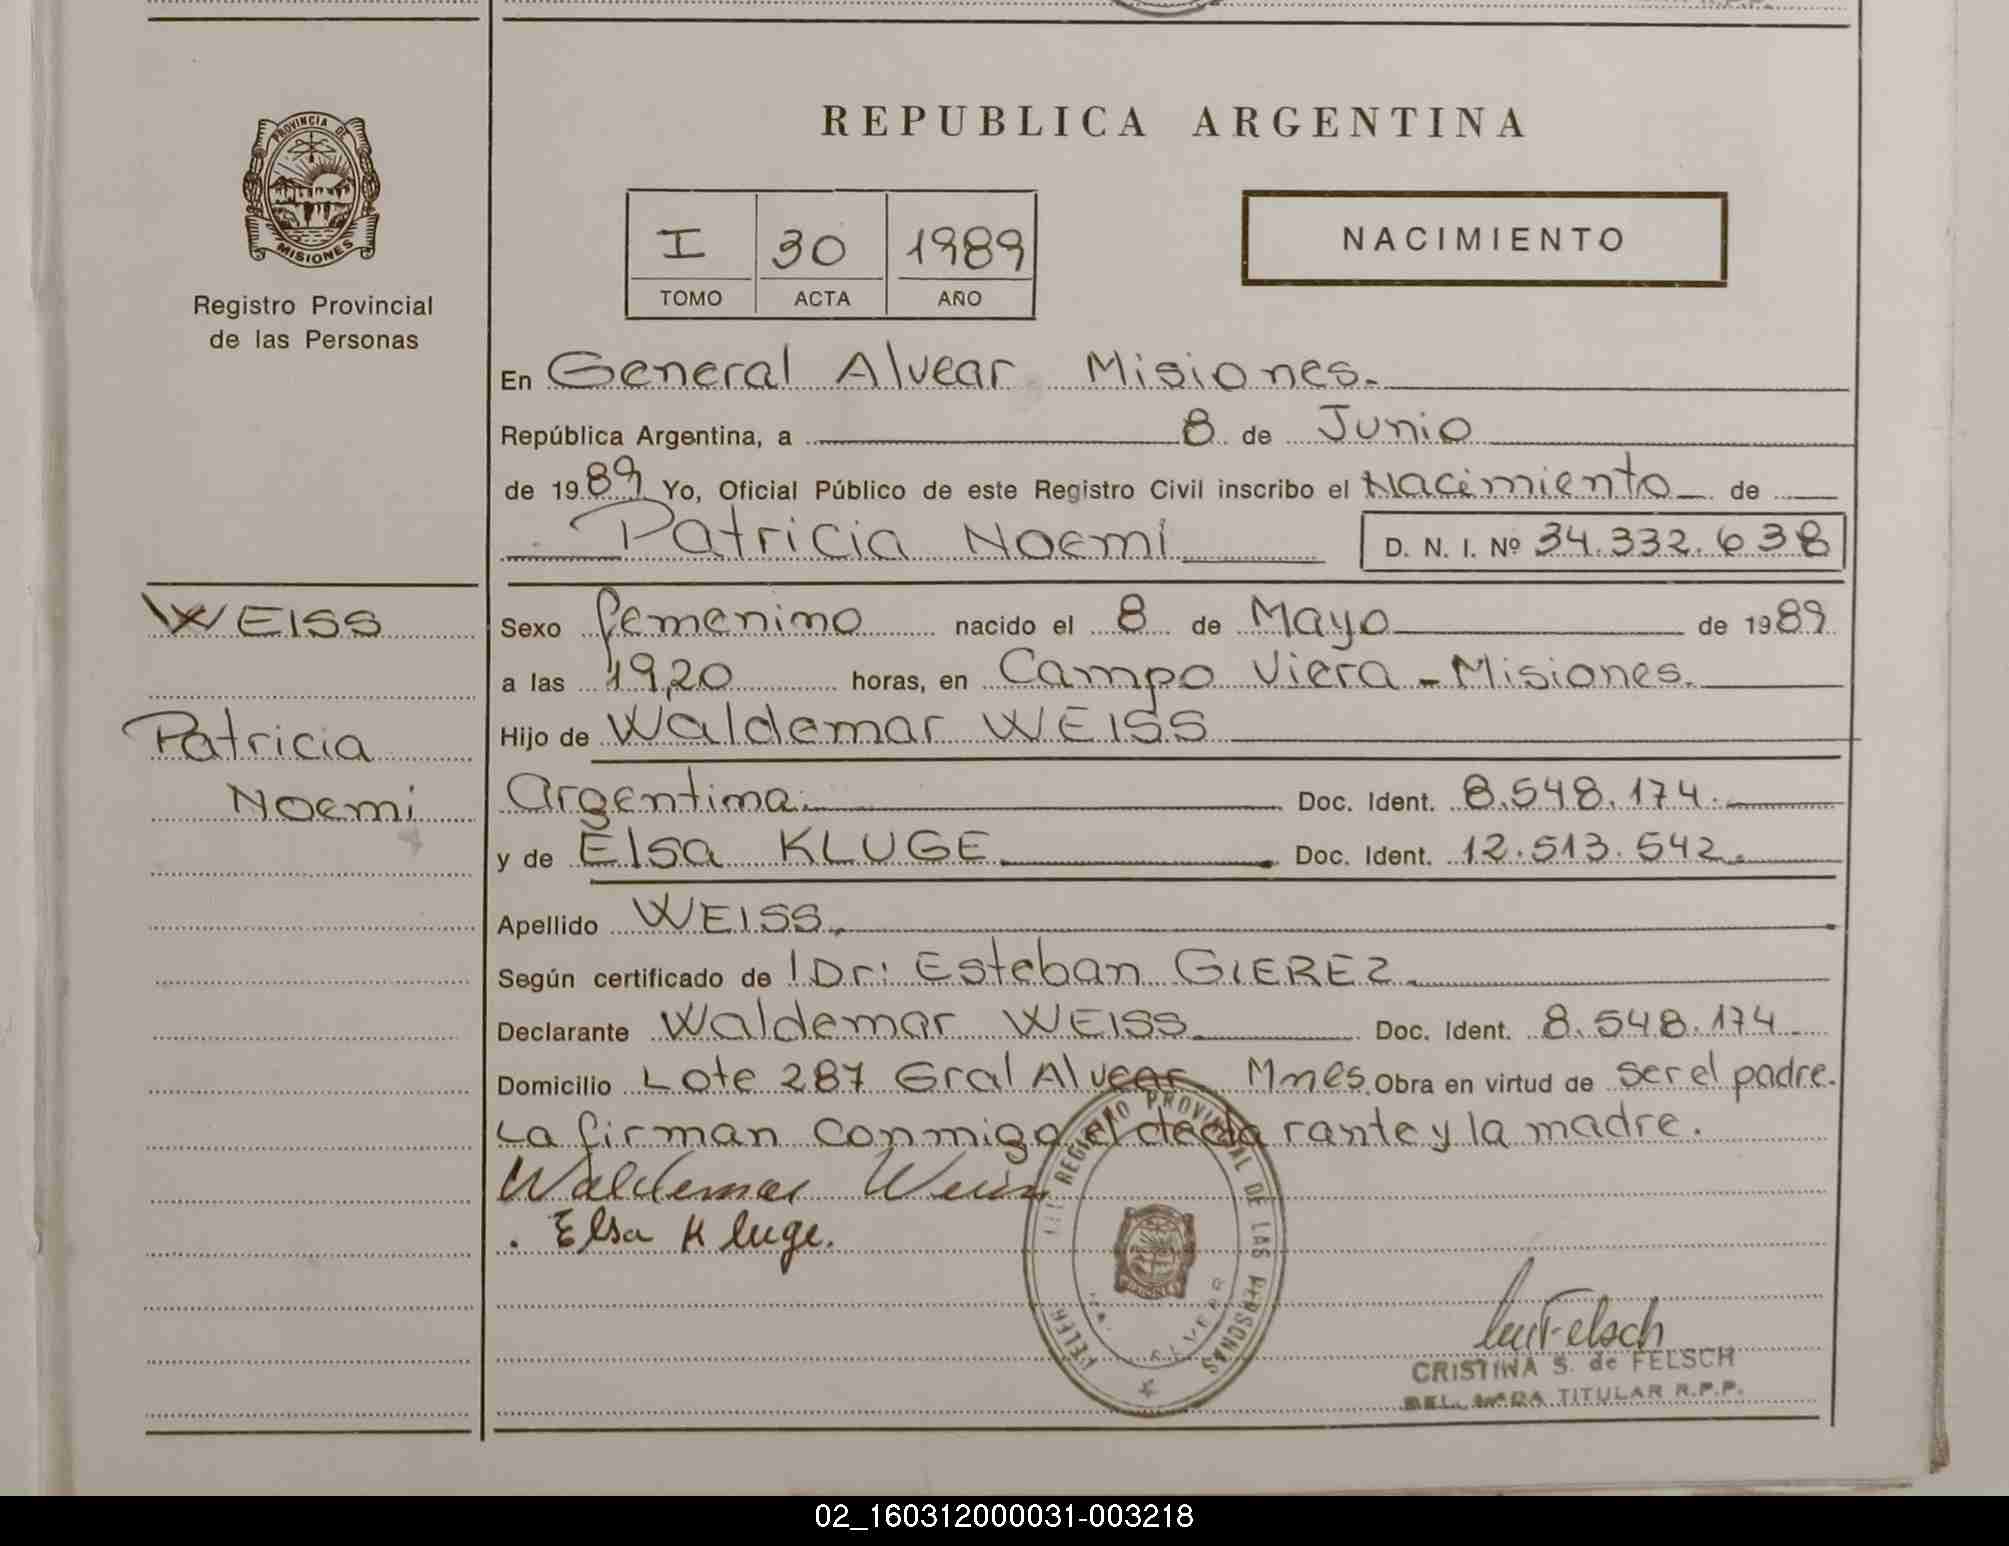 PROVINCIA DE
MISIONES
Registro Provincial
de las Personas
REPUBLICA ARGENTINA
I 30 1989
TOMO ACTA AÑO
NACIMIENTO
En General Alvear Misiones.
República Argentina, a 8 de Junio
de 1989 Yo, Oficial Público de este Registro Civil inscribo el Nacimiento de
Patricia Noemi D. N. I. Nº 34.332.638
WEISS
Patricia
Noemi
Sexo femenino nacido el 8 de Mayo de 1989
a las 19,20 horas, en Campo Viera - Misiones.
Hijo de Waldemar WEISS
Argentina. Doc. Ident. 8.548.174.
y de Elsa KLUGE Doc. Ident. 12.513.542.
Apellido WEISS.
Según certificado de Dr: Esteban GIEREZ
Declarante Waldemar WEISS Doc. Ident. 8.548.174
Domicilio Lote 287 Gral Alvear Mnes. Obra en virtud de ser el padre.
La firman conmigo el declarante y la madre.
Waldemar Weiss
Elsa Kluge.
REGISTRO PROVINCIAL DE LAS PERSONAS
ALVEAR
CRISTINA S. de FELSCH
TITULAR R.P.P.
02_160312000031-003218